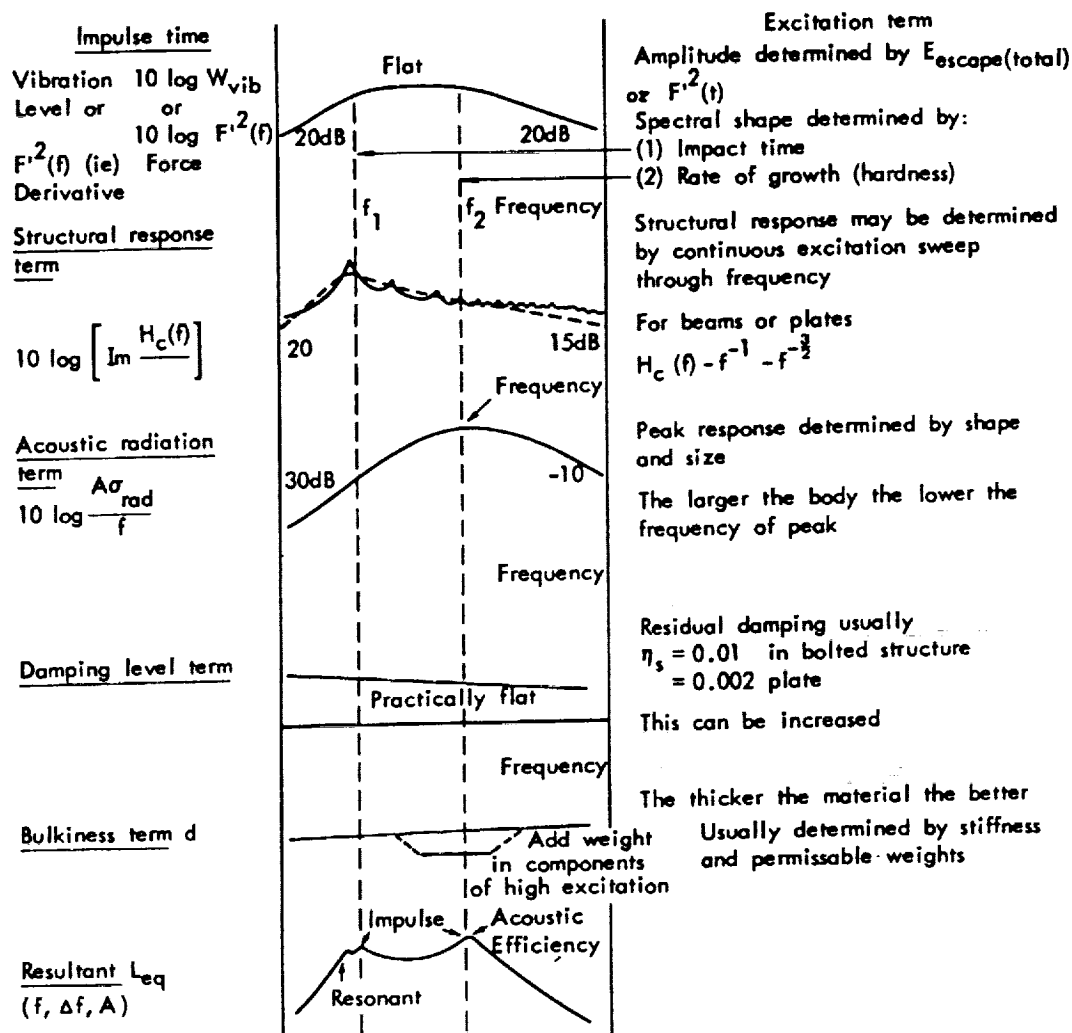 Impulse time
Vibration 10 log W_vib
Level or or
10 log F'^2(f)
F'^2(f) (ie) Force
Derivative
Structural response
term
10 log [Im H_c(f)/]
Acoustic radiation
term
10 log Aσ_rad/f
Damping level term
Bulkiness term d
Resultant L_eq
(f, Δf, A)
Flat
20dB 20dB
f_1 f_2 Frequency
20 15dB
Frequency
30dB -10
Frequency
Practically flat
Frequency
Add weight
in components
of high excitation
Impulse Acoustic
Efficiency
Resonant
Excitation term
Amplitude determined by E_escape(total)
or F'^2(t)
Spectral shape determined by:
(1) Impact time
(2) Rate of growth (hardness)
Structural response may be determined
by continuous excitation sweep
through frequency
For beams or plates
H_c (f) - f^-1 - f^-3/2
Peak response determined by shape
and size
The larger the body the lower the
frequency of peak
Residual damping usually
η_s = 0.01 in bolted structure
= 0.002 plate
This can be increased
The thicker the material the better
Usually determined by stiffness
and permissable weights